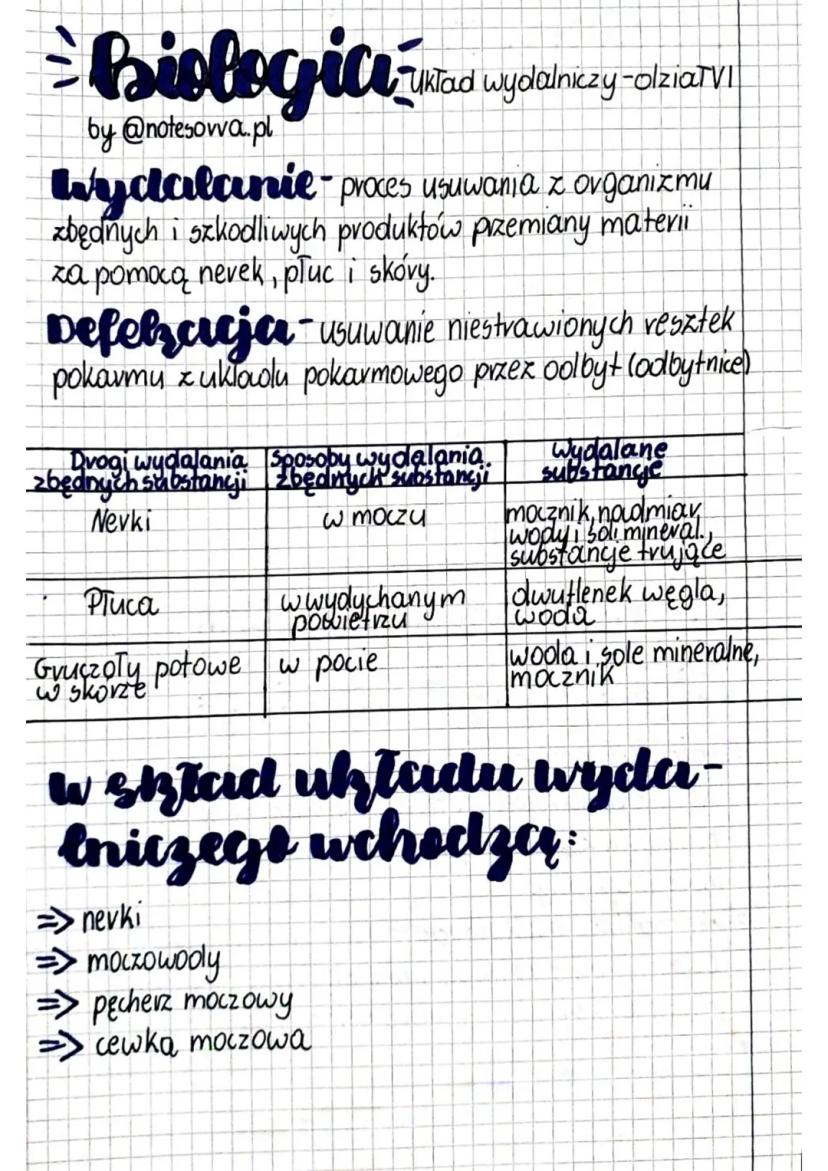 Biologia - Układ wydalniczy - dział VI
by @notesovva.pl
Wydalanie - proces usuwania z organizmu
zbędnych i szkodliwych produktów przemiany materii
za pomocą nerek, płuc i skóry.
Defekacja - usuwanie niestrawionych resztek
pokarmu z układu pokarmowego przez odbyt (odbytnice)
Drogi wydalania zbędnych substancji | Sposoby wydalania zbędnych substancji | Wydalane substancje
Nerki | w moczu | mocznik, nadmiar wody i soli mineral., substancje trujące
Płuca | w wydychanym powietrzu | dwutlenek węgla, woda
Gruczoły potowe w skórze | w pocie | woda i sole mineralne, mocznik
W skład układu wyda-
lniczego wchodzą:
=> nerki
=> moczowody
=> pęcherz moczowy
=> cewka moczowa